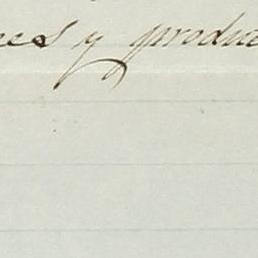 nes y produc